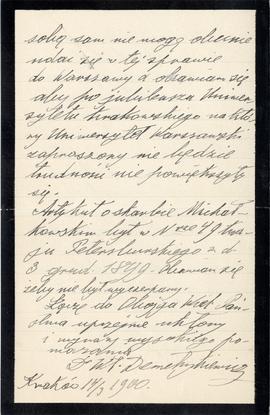 sobą sam nie mogę obecnie
udać się w tej sprawie
do Warszawy a obawiam się
aby po jubileuszu Uniwer
sytetu krakowskiego na któ
ry Uniwersytet Warszawski
zaproszony nie będzie
trudności nie powiększyły
się.
Artykuł o skarbie Michał
kowskim był w Nrze 49 Kra
ju Petersburskiego z d.
3 grud. 1899. Obawiam się
żeby nie był wyczerpany.
Łączę do Objga Wiel. Pań
stwa uprzejme ukłony
i wyrazy wysokiego po
ważania
Dr Wł. Demetrykiewicz
Kraków 14/3 1900.